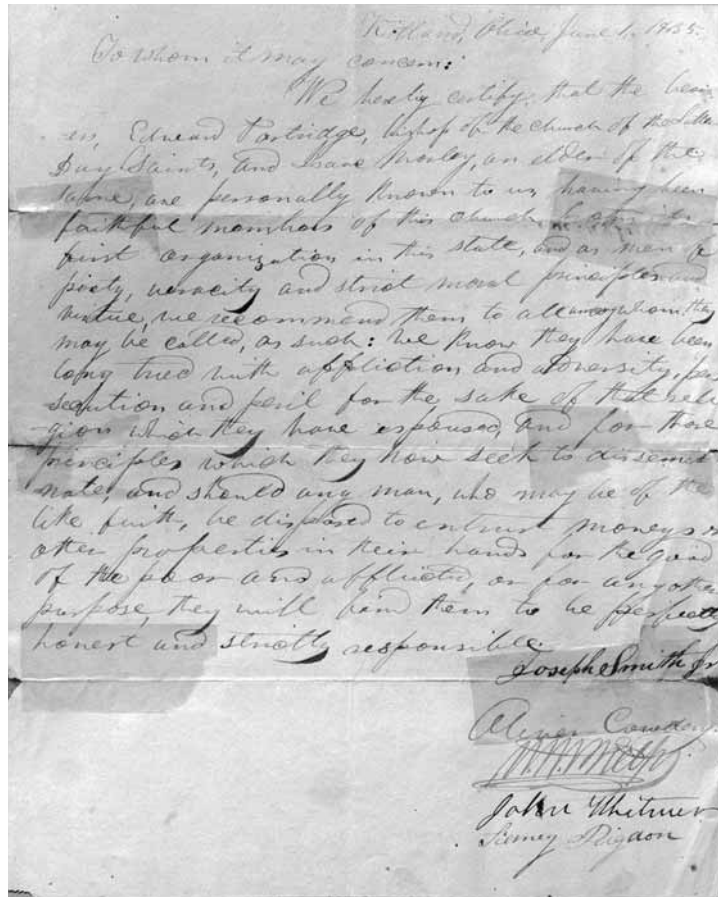 Kirtland, Ohio, June 1, 1835.
To whom it may concern:
We hereby certify, that the bear-
ers, Edward Partridge, bishop of the church of the Latter
Day Saints, and Isaac Morley, an elder of the
same, are personally known to us, having been
faithful members of this church from its
first organization in this state, and as men of
piety, veracity and strict moral principles and
virtue, we recommend them to all among whom they
may be called, as such: We know they have been
long tried with affliction and adversity, per
secution and peril for the sake of that reli
gion which they have espoused, and for those
principles which they now seek to dissemi
nate, and should any man, who may be of the
like faith, be disposed to entrust moneys or
other properties in their hands for the good
of the poor and afflicted, or for any other
purpose, they will find them to be perfectly
honest and strictly responsible.
Joseph Smith Jr
Oliver Cowdery
W. W. Phelps
John Whitmer
Sidney Rigdon